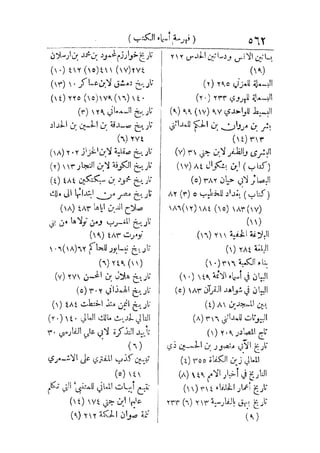 ( فهرسة أسماء الكتب ) ٥٦٢
بساتين الانس ودساتين الحدس ٢١٢
(١٩)
البسملة للمزني ٢٩٥ (٢)
البسملة للهروي ٢٣٣ (٢٠)
البسيط للواحدي ٩٧ (١٧) ٩٩ (٩)
بشر بن مروان بن الحكم للمدائني
٣١٣ (١٤)
البشرى والظفر لابن جني ٣١ (٧)
(كتاب) ابن بشكوال ٨٤ (١٧)
البصائر لابي حيان ٣٨٢ (٥)
(كتاب) بغداد للخطيب ٥ (٣) ٨٢
(١٧) ١٨٣ (١٥) ١٨٤ (١٢) ١٨٦
(١١)
البلاغة الخفية ٢١١ (١٦)
البلغة ٢٨٤ (١)
بناء الكعبة ٣١٦ (١٠)
البيان في أسماء الائمة ١٤٩ (١٠)
البيان في شواهد القرآن ١٨٣ (٥)
بين المسجدين ٨١ (٤)
البيوتات للمدائني ٣١٦ (٨)
تاج المصادر ٢٠٩ (١)
تاريخ الآبي منصور بن الحسين ذي
المعالي زين الكفاة ٣٥٥ (٤)
التاريخ في أخبار الامم ١٤٩ (٨)
تاريخ أعمار الخلفاء ٣١٤ (١١)
تاريخ بيهق بالفارسية ٢١٣ (٦) ٢٣٣
(٩)
تاريخ خوارزم لمحمود بن محمد بن ارسلان
٢٧٤ (١٧) ٤١١ (١٥) ٤١٢ (١٠)
تاريخ دمشق لابن عساكر ١٠ (١٣)
١٤٠ (١٦) ١٧٩ (١٥) ٢٢٥ (١٤)
تاريخ السمعاني ١٢٩ (٣)
تاريخ صدقة بن الحسين بن الحداد
٢٧٤ (٦)
تاريخ صقلية لابن الخزاز ٢٠٢ (١٨)
تاريخ الكوفة لابن النجار ١١٣ (٢)
تاريخ محمود بن سبكتكين ٤٨٤ (٤)
تاريخ مصر من ابتدائها الى ملك
صلاح الدين اياها ٤٨٣ (١٨)
تاريخ المغرب ومن تولاها من بني
تومرت ٤٨٣ (١٩)
تاريخ نيسابور للحاكم ٦٢ (١٨) ١٠٦
(١١) ٢٤٩ (٦)
تاريخ هلال بن المحسن ٢٧١ (٧)
تاريخ الهمذاني ٣٠٢ (٥)
تاريخ اليمن منذ اختطت ٤٨٤ (١)
التالي لحديث مالك العالي ١٤٠ (٢٠)
تأييد التذكرة لابي علي الفارسي ٣٠
(٦)
تبيين كذب المفتري على الاشعري
١٤١ (٥)
تتبع أبيات المعاني للمتنبي التي تكلم
عليها ابن جني ١٧٤ (١٤)
تتمة صوان الحكمة ٢١٢ (٩)